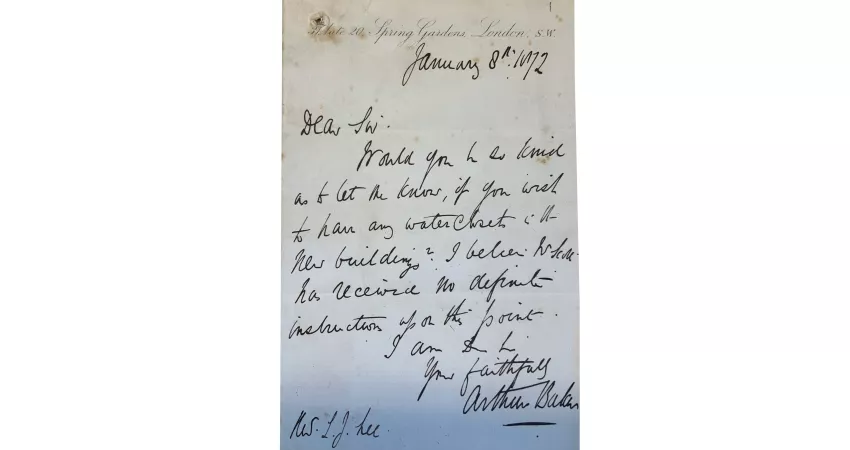 1
20, Spring Gardens, London, S.W.
January 8th. 1872
Dear Sir.
Would you be so kind
as to let me know, if you wish
to have any waterclosets in the
New buildings? I believe Mr Scott
has received no definite
instructions upon this point.
I am Dr Sir
Your faithfully
Arthur Baker
Rev. L. J. Lee